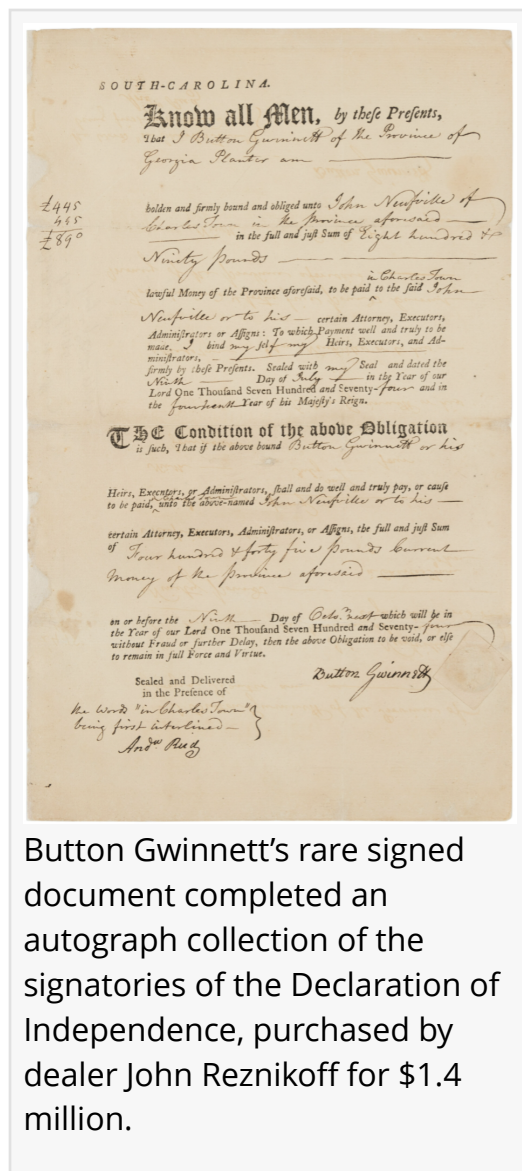 SOUTH-CAROLINA.
Know all Men, by theſe Preſents,
That I Button Gwinnett of the Province of
Georgia Planter am
£445
445
£890
holden and firmly bound and obliged unto John Neufville of
Charles Town in the Province aforesaid
in the full and juſt Sum of Eight hundred &
Ninety pounds
in Charles Town
lawful Money of the Province aforeſaid, to be paid ‸ to the ſaid John
Neufville or to his certain Attorney, Executors,
Adminiſtrators or Aſſigns: To which Payment well and truly to be
made. I bind my self my Heirs, Executors, and Ad-
miniſtrators,
firmly by theſe Preſents. Sealed with my Seal and dated the
Ninth Day of July in the Year of our
Lord One Thouſand Seven Hundred and Seventy-four and in
the fourteenth Year of his Majeſty's Reign.
THE Condition of the above Obligation
is ſuch, That if the above bound Button Gwinnett or his
Heirs, Executors, or Adminiſtrators, ſhall and do well and truly pay, or cauſe
to be paid, ‸ unto the above-named John Neufville or to his
certain Attorney, Executors, Adminiſtrators, or Aſſigns, the full and juſt Sum
of Four hundred & forty five pounds Current
Money of the Province aforesaid
on or before the Ninth Day of Octo.r next which will be in
the Year of our Lord One Thouſand Seven Hundred and Seventy-four
without Fraud or further Delay, then the above Obligation to be void, or elſe
to remain in full Force and Virtue.
Button Gwinnett
Sealed and Delivered
in the Preſence of
the Words "in Charles Town"
being first interlined
And.w Reid
Button Gwinnett’s rare signed
document completed an
autograph collection of the
signatories of the Declaration of
Independence, purchased by
dealer John Reznikoff for $1.4
million.